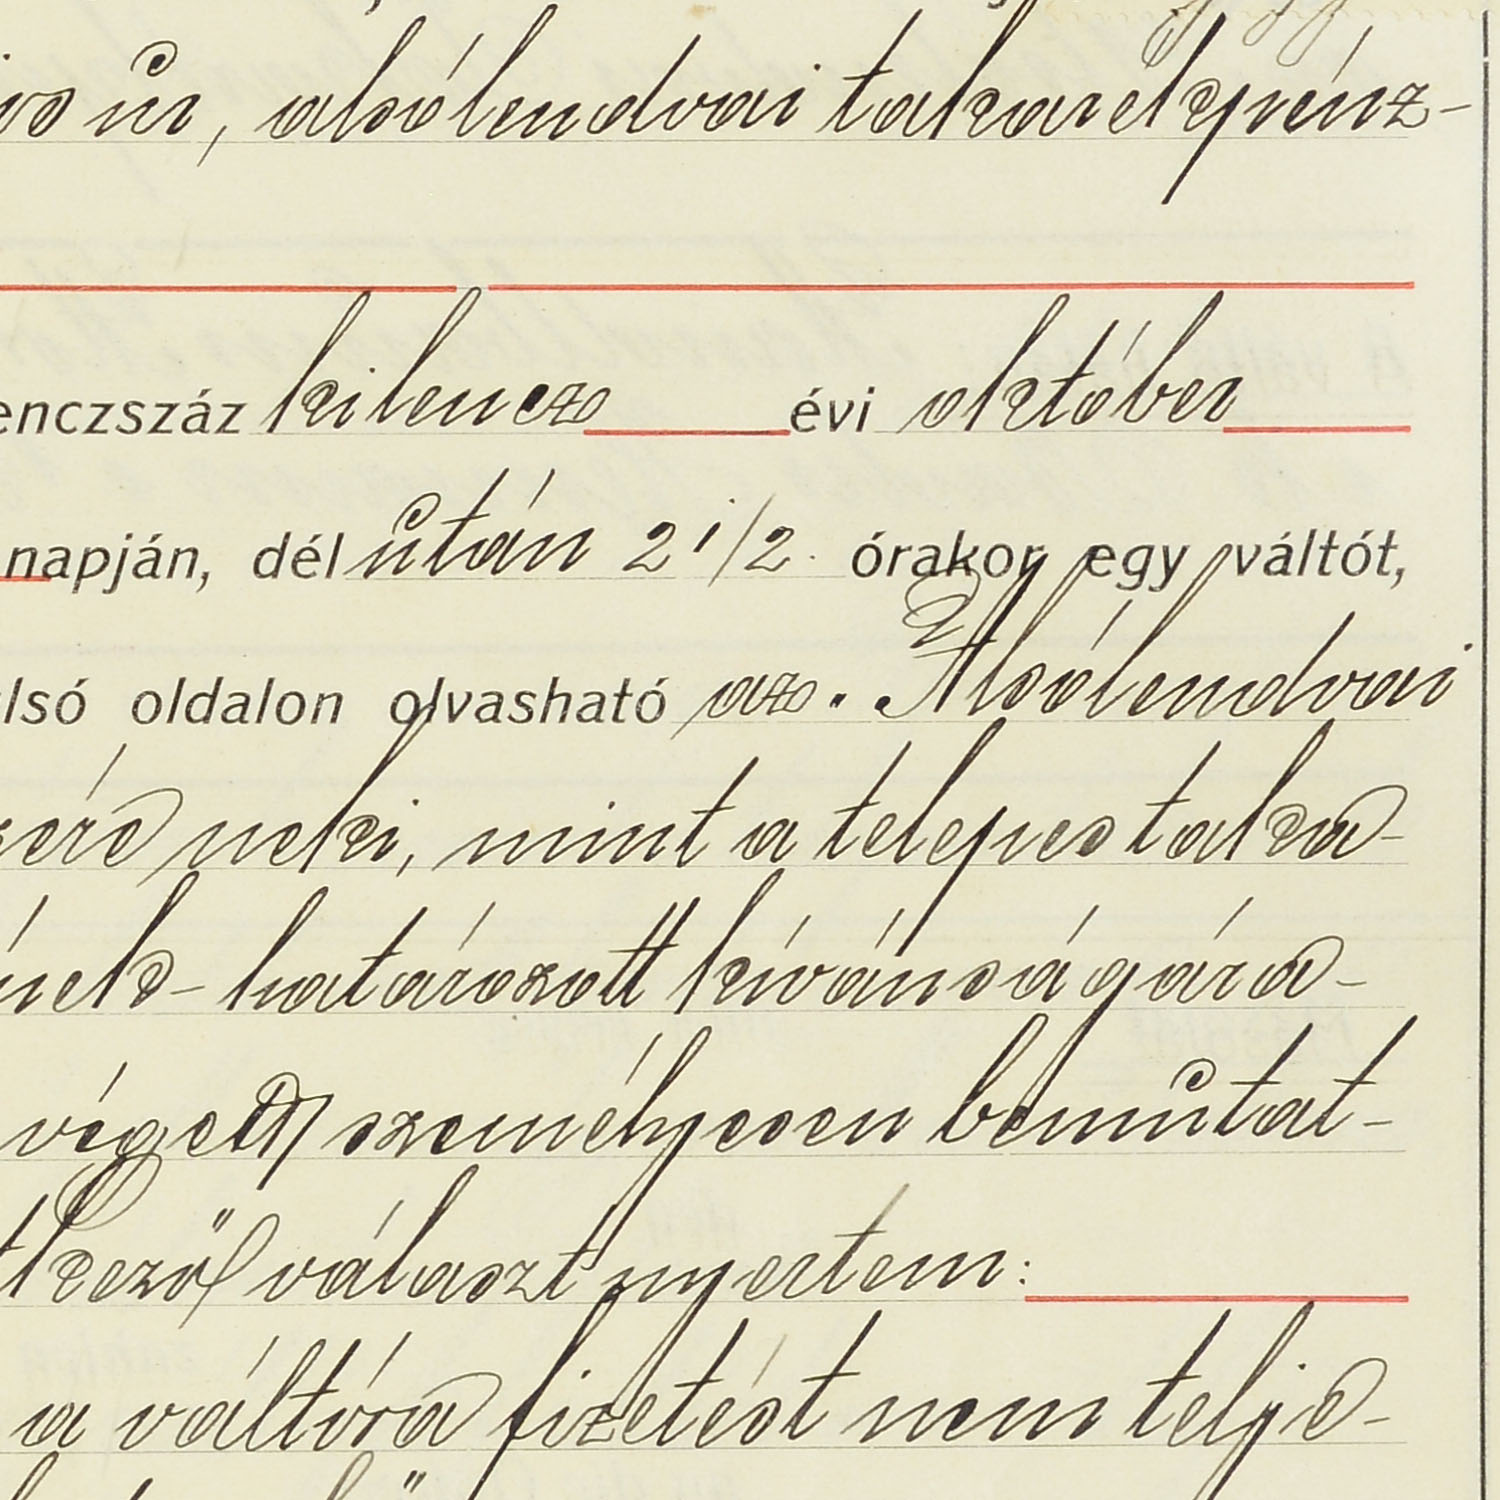 úr, alsólendvai takarékpénz-
enczszáz kilencz évi október
napján, dél után 2 1/2 órakor egy váltót,
lsó oldalon olvasható az Alsólendvai
neki, mint a telepes taka-
nek - határozott kívánságára -
végett személyesen bemutat-
tkező választ nyertem:
a váltóra fizetést nem telje-